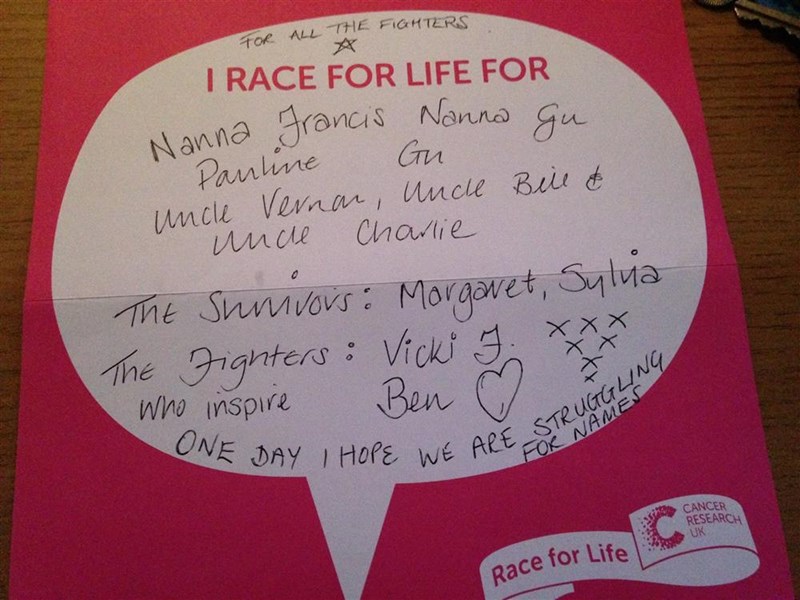 FOR ALL THE FIGHTERS
I RACE FOR LIFE FOR
Nanna Francis Nanna Gu
Pauline Gu
Uncle Vernon, Uncle Bill &
Uncle Charlie
THE Survivors: Margaret, Sylvia
THE Fighters: Vicki J. x x x
x x
Who inspire Ben x
x
ONE DAY I HOPE WE ARE STRUGGLING
FOR NAMES
CANCER
RESEARCH
UK
Race for Life